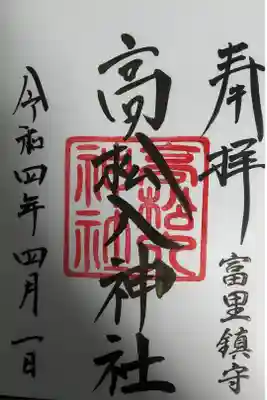 奉拝
富里鎮守
高松入神社
高松入神社
令和四年四月一日